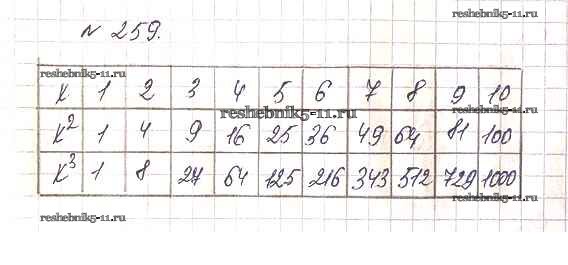 reshebnik5-11.ru
№ 259.
reshebnik5-11.ru
x 1 2 3 4 5 6 7 8 9 10
reshebnik5-11.ru
x² 1 4 9 16 25 36 49 64 81 100
x³ 1 8 27 64 125 216 343 512 729 1000
reshebnik5-11.ru reshebnik5-11.ru